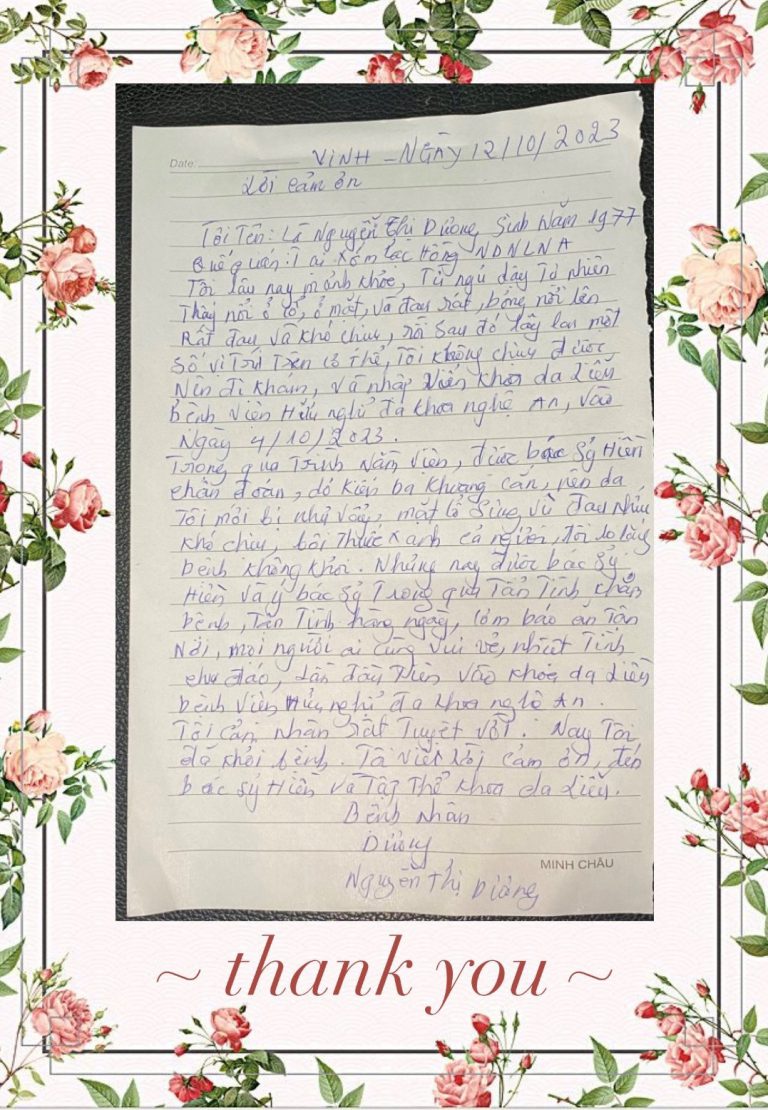 Date:
VINH – Ngày 12/10/2023
Lời cảm ơn
Tôi Tên: Là Nguyễn Thị Dương, Sinh Năm 1977
Quê quán: Tại Xóm Lạc Hồng NDNLNA
Tôi lâu nay mạnh khỏe, Từ ngủ dậy Tự nhiên
Thấy nổi ở cổ, ở mặt, và đau rát, bỏng nổi lên
Rất đau và khó chịu, rồi sau đó lây lan một
Số vị Trí Trên cơ thể, Tôi không chịu được
Nên đi khám, và nhập Viện khoa da liễu
bệnh Viện Hữu nghị đa khoa nghệ An, vào
Ngày 4/10/2023.
Trong quá Trình Nằm viện, được bác Sỹ Hiền
chẩn đoán, do kiến ba khoang cắn, nên da
Tôi mới bị như vậy, mặt cổ Sưng vù đau nhức
khó chịu, bôi Thuốc xanh cả người, tôi lo lắng
bệnh không khỏi. Nhưng nay được bác Sỹ
Hiền và y bác Sỹ Trong khoa Tận Tình khám
bệnh, Tận Tình hàng ngày, cơm báo ăn Tận
Nơi, mọi người ai cũng vui vẻ, nhiệt Tình
chu đáo, lần đầu Tiên vào khoa da liễu
bệnh viện Hữu nghị đa khoa nghệ An.
Tôi cảm nhận rất Tuyệt vời. Nay Tôi
đã khỏi bệnh. Tôi Viết Lời cảm ơn, đến
bác sỹ Hiền và Tập Thể khoa da liễu.
Bệnh nhân
Dương
MINH CHÂU
Nguyễn Thị Dương
~ thank you ~